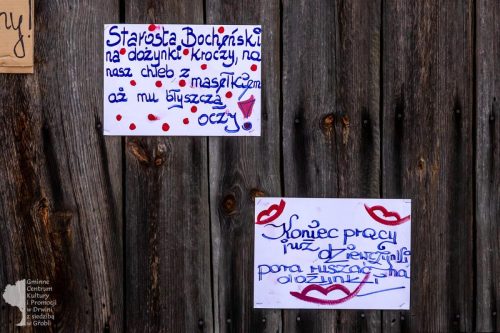 ny!
Starosta Bocheński
na dożynki kroczy, na
nasz chleb z masełkiem
aż mu błyszczą
oczy!
Koniec pracy
już dziewczynki
pora ruszać na
dożynki!
Gminne
Centrum
Kultury
i Promocji
w Drwini
z siedzibą
w Grobli